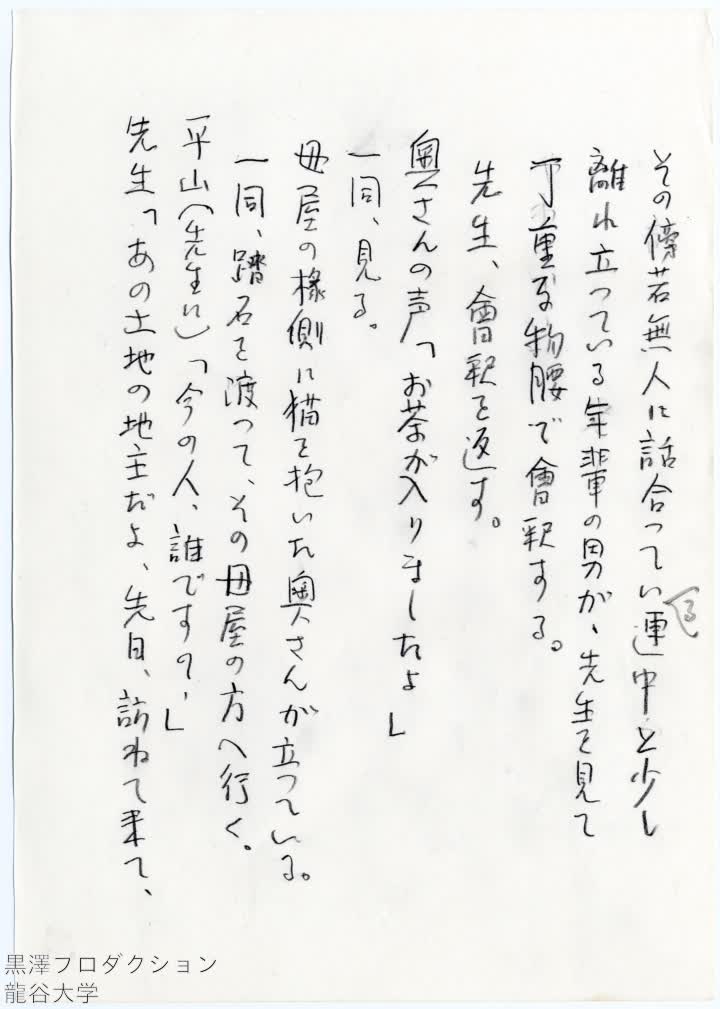 その傍若無人に話合ってい(る)連中と少し
離れ立っている年輩の男が、先生を見て
丁重な物腰で會釈する。
先生、會釈を返す。
奥さんの声「お茶が入りましたよ」
一同、見る。
母屋の椽側に猫を抱いた奥さんが立っている。
一同、踏石を渡って、その母屋の方へ行く。
平山(先生に)「今の人、誰ですの、」
先生「あの土地の地主だよ、先日、訪ねて来て、
黒澤プロダクション
龍谷大学